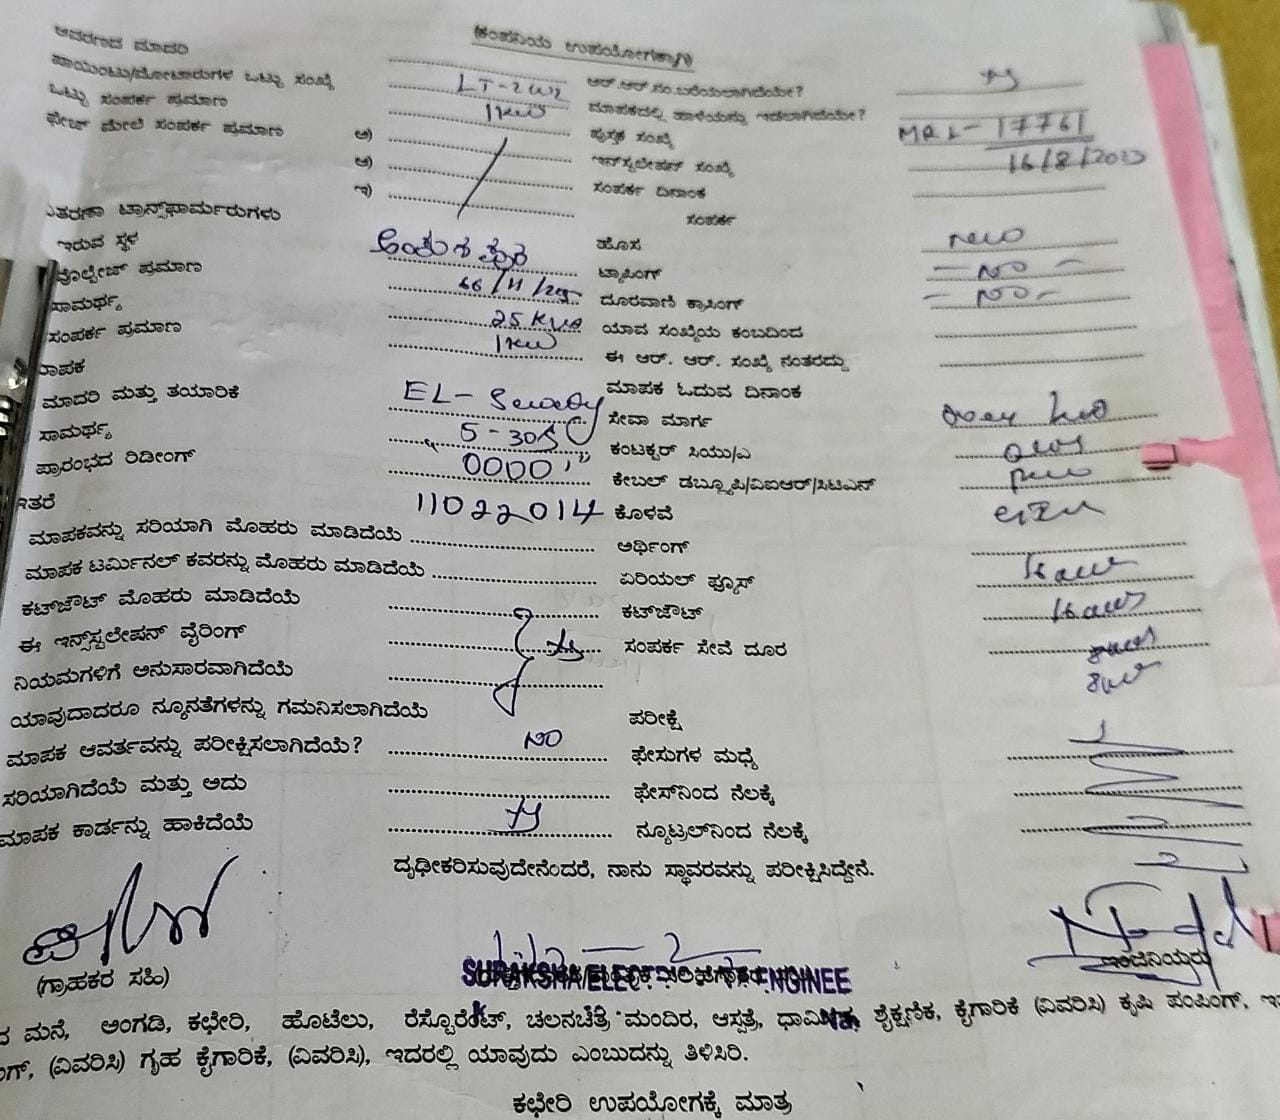 (ಕಂಪನಿಯ ಉಪಯೋಗಕ್ಕಾಗಿ)
ಆವರಣದ ಮಾದರಿ
ಪಾಯಿಂಟು/ಮೋಟಾರುಗಳ ಒಟ್ಟು ಸಂಖ್ಯೆ LT-2 ಆರ್.ಆರ್.ಸಂ.ಬರೆಯಲಾಗಿದೆಯೇ?
ಒಟ್ಟು ಸಂಪರ್ಕ ಪ್ರಮಾಣ 1KW ಮಾಪಕದಲ್ಲಿ ಹಾಳೆಯನ್ನು ಇಡಲಾಗಿದೆಯೇ?
ಫೇಜ್ ಮೇಲೆ ಸಂಪರ್ಕ ಪ್ರಮಾಣ ಅ) ಪುಸ್ತಕ ಸಂಖ್ಯೆ MR 1-17761
ಆ) ಇನ್‌ಸ್ಟಲೇಷನ್ ಸಂಖ್ಯೆ 16/8/2023
ಇ) ಸಂಪರ್ಕ ದಿನಾಂಕ
ವಿತರಣಾ ಟ್ರಾನ್ಸ್‌ಫಾರ್ಮರುಗಳು ಸಂಪರ್ಕ
ಇರುವ ಸ್ಥಳ ಹೊಸ new
ವೋಲ್ಟೇಜ್ ಪ್ರಮಾಣ 66/11/ ಟ್ಯಾಪಿಂಗ್ - NO -
ಸಾಮರ್ಥ್ಯ 25 KVA ದೂರವಾಣಿ ಕ್ರಾಸಿಂಗ್ - NO -
ಸಂಪರ್ಕ ಪ್ರಮಾಣ 1KW ಯಾವ ಸಂಖ್ಯೆಯ ಕಂಬದಿಂದ
ಈ ಆರ್. ಆರ್. ಸಂಖ್ಯೆ ನಂತರದ್ದು
ಮಾಪಕ ಮಾಪಕ ಓದುವ ದಿನಾಂಕ
ಮಾದರಿ ಮತ್ತು ತಯಾರಿಕೆ EL- ಸೇವಾ ಮಾರ್ಗ
ಸಾಮರ್ಥ್ಯ 5-30 ಕಂಟಕ್ಟರ್ ಸಿಯು/ಎ
ಪ್ರಾರಂಭದ ರಿಡೀಂಗ್ 0000 ಕೇಬಲ್ ಡಬ್ಲ್ಯೂಪಿ/ವಿಐಆರ್/ಸಿಟಿಎಸ್
ಇತರೆ 11022014 ಕೊಳವೆ
ಮಾಪಕವನ್ನು ಸರಿಯಾಗಿ ಮೊಹರು ಮಾಡಿದೆಯೆ ಅರ್ಥಿಂಗ್
ಮಾಪಕ ಟರ್ಮಿನಲ್ ಕವರನ್ನು ಮೊಹರು ಮಾಡಿದೆಯೆ ಏರಿಯಲ್ ಫ್ಯೂಸ್
ಕಟ್‌ಔಟ್ ಮೊಹರು ಮಾಡಿದೆಯೆ ಕಟ್‌ಔಟ್
ಈ ಇನ್ಸ್‌ಸ್ಟಲೇಷನ್ ವೈರಿಂಗ್ ಸಂಪರ್ಕ ಸೇವೆ ದೂರ
ನಿಯಮಗಳಿಗೆ ಅನುಸಾರವಾಗಿದೆಯೆ
ಯಾವುದಾದರೂ ನ್ಯೂನತೆಗಳನ್ನು ಗಮನಿಸಲಾಗಿದೆಯೆ ಪರೀಕ್ಷೆ
ಮಾಪಕ ಆವರ್ತವನ್ನು ಪರೀಕ್ಷಿಸಲಾಗಿದೆಯೆ? NO ಫೇಸುಗಳ ಮಧ್ಯೆ
ಸರಿಯಾಗಿದೆಯೆ ಮತ್ತು ಅದು ಫೇಸ್‌ನಿಂದ ನೆಲಕ್ಕೆ
ಮಾಪಕ ಕಾರ್ಡನ್ನು ಹಾಕಿದೆಯೆ ನ್ಯೂಟ್ರಲ್‌ನಿಂದ ನೆಲಕ್ಕೆ
ದೃಢೀಕರಿಸುವುದೇನೆಂದರೆ, ನಾನು ಸ್ಥಾವರವನ್ನು ಪರೀಕ್ಷಿಸಿದ್ದೇನೆ.
(ಗ್ರಾಹಕರ ಸಹಿ) SURAKSHA ELECT ENGINEE ಇಂಜಿನಿಯರು
ಮನೆ, ಅಂಗಡಿ, ಕಛೇರಿ, ಹೊಟೆಲು, ರೆಸ್ಟೊರೆಂಟ್, ಚಲನಚಿತ್ರ ಮಂದಿರ, ಆಸ್ಪತ್ರೆ, ಧಾರ್ಮಿಕ, ಶೈಕ್ಷಣಿಕ, ಕೈಗಾರಿಕೆ (ವಿವರಿಸಿ) ಕೃಷಿ ಪಂಪಿಂಗ್,
(ವಿವರಿಸಿ) ಗೃಹ ಕೈಗಾರಿಕೆ, (ವಿವರಿಸಿ), ಇದರಲ್ಲಿ ಯಾವುದು ಎಂಬುದನ್ನು ತಿಳಿಸಿರಿ.
ಕಛೇರಿ ಉಪಯೋಗಕ್ಕೆ ಮಾತ್ರ